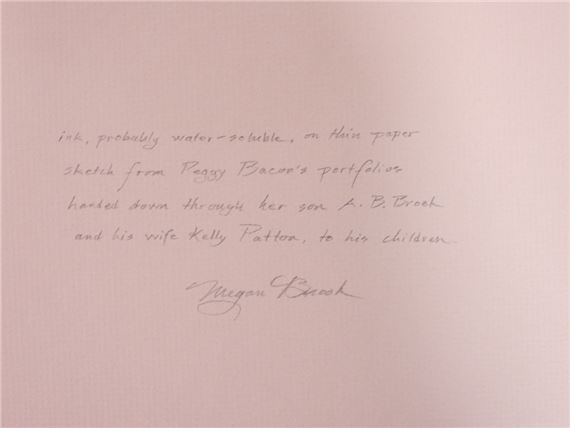 ink, probably water-soluble, on thin paper
sketch from Peggy Bacon's portfolios
handed down through her son A. B. Brook
and his wife Kelly Patton, to his children.
Megan Brook